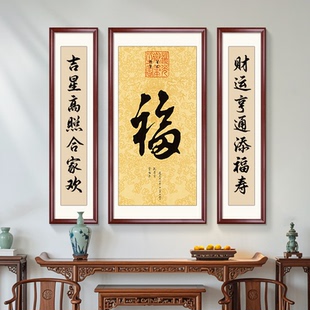 财运亨通添福寿
福
吉星高照合家欢